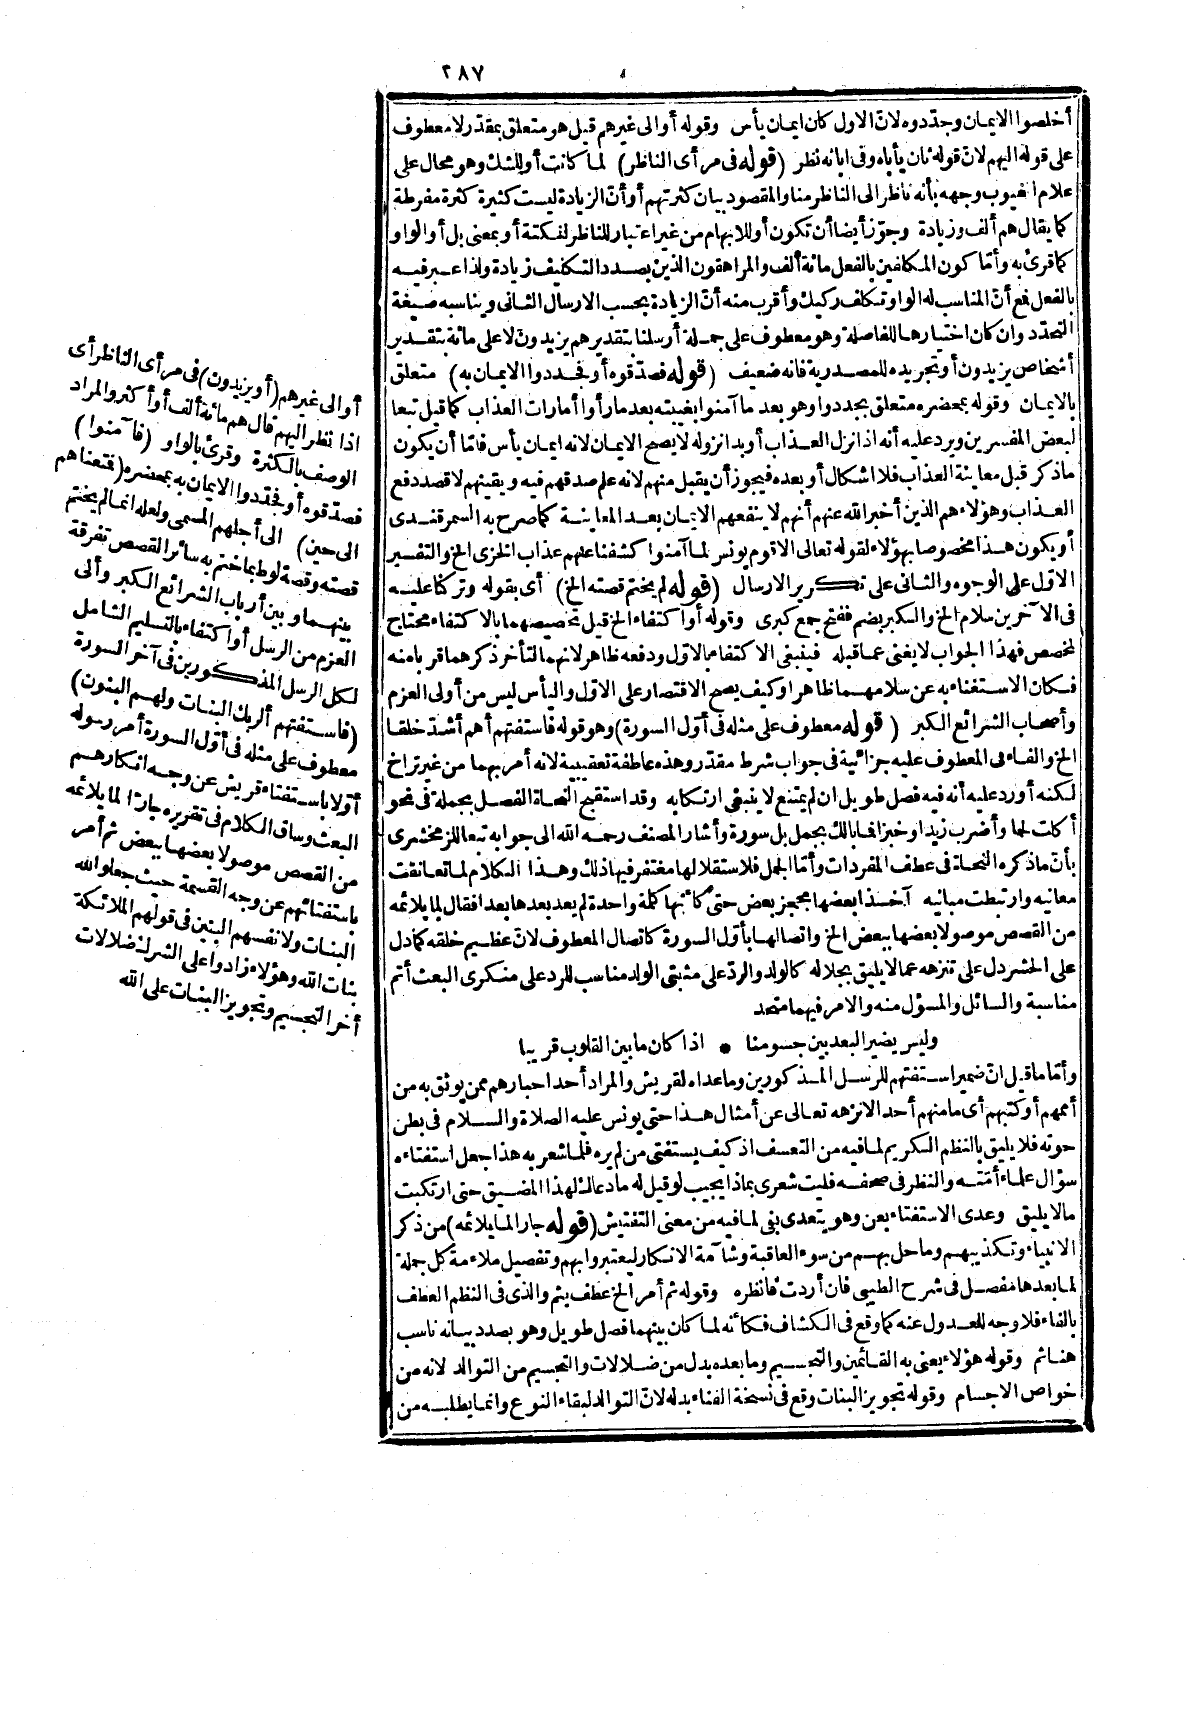 ٢٨٧
أخلصوا الايمان وجددوه لان الاول كان ايمان يأس وقوله أو الى غيرهم قيل هو متعلق بمقدر لا معطوف
على قوله اليهم لان قوله فآمنوا يأباه وفى ابائه نظر (قوله فى مرأى الناظر) لما كانت أو للشك وهو محال على
علام الغيوب وجهه بأنه ناظر الى الناظر منا والمقصود بيان كثرتهم أو أن الزيادة ليست كثيرة كثرة مفرطة
كما يقال هم ألف وزيادة وجوّز أيضا أن تكون أو للابهام من غير اعتبار للناظر لنكتة أو بمعنى بل أو الواو
كما قرئ به وأمّا كون المكلفين بالفعل مائة ألف والمراهقون الذين بصدد التكليف زيادة ولذا عبر فيه
بالفعل فمع أنّ المناسب له الواو تكلف ركيك وأقرب منه أنّ الزيادة بحسب الارسال الثانى ويناسبه صيغة
التجدد وان كان اختيارها للفاصلة وهو معطوف على جملة أرسلنا بتقدير هم يزيدون لا على مائة بتقدير
أشخاص يزيدون أو تجريده للمصدرية فانه ضعيف (قوله فصدّقوه أو فجددوا الايمان به) متعلق
بالايمان وقوله بمحضره متعلق بجددوا وهو بعد ما آمنوا بغيبته بعد ما رأوا أمارات العذاب كما قيل تبعا
لبعض المفسرين ويرد عليه أنه اذ انزل العذاب أو بدا نزوله لا يصح الايمان لانه ايمان يأس فامّا أن يكون
ما ذكر قبل معاينة العذاب فلا اشكال أو بعده فيجوز أن يقبل منهم لانه علم صدقهم فيه ويقينهم لا قصد دفع
العذاب وهؤلاء هم الذين أخبر الله عنهم أنهم لا ينفعهم الايمان بعد المعاينة كما صرح به السمرقندى
أو يكون هذا مخصوصا بهؤلاء لقوله تعالى الا قوم يونس لما آمنوا كشفنا عنهم عذاب الخزى الخ والتفسير
الاول على الوجوه والثانى على تكرير الارسال (قوله لم يختم قصته الخ) أى بقوله وتركنا عليه
فى الآخرين سلام الخ والكبر بضم ففتح جمع كبرى وقوله أو اكتفاء الخ قيل تخصيصهما بالاكتفاء محتاج
لمخصص فهذا الجواب لا يغنى عما قبله فينبغى الاكتفاء بالاول ودفعه ظاهر لانهما لتأخر ذكرهما قربا منه
فكان الاستغناء به عن سلامهما ظاهرا وكيف يصح الاقتصار على الاول والياس ليس من أولى العزم
وأصحاب الشرائع الكبر (قوله معطوف على مثله فى أوّل السورة) وهو قوله فاستفتهم أهم أشدّ خلقا
الخ والفاء فى المعطوف عليه جزائية فى جواب شرط مقدر وهذه عاطفة تعقيبية لانه أمر بهما من غير تراخ
لكنه أورد عليه أنه فيه فصل طويل ان لم يمتنع لا ينبغى ارتكابه وقد استقبح النحاة الفصل بجملة فى نحو
أكلت لحما وأضرب زيدا وخبزا فما بالك بجمل بل سورة وأشار المصنف رحمه الله الى جوابه تبعا للزمخشرى
بأن ما ذكره النحاة فى عطف المفردات وأمّا الجمل فلاستقلالها مغتفر فيها ذلك وهذا الكلام لما تعانقت
معانيه وارتبطت مبانيه آخذا بعضها بحجز بعض حتى كأنها كلمة واحدة لم يعد بعدها بعدا فقال لما يلائمه
من القصص موصولا بعضها ببعض الخ واتصالها بأوّل السورة كاتصال المعطوف لانّ عظيم خلقه كما دل
على الحشر دل على تنزهه عما لا يليق بجلاله كالولد والردّ على مثبتى الولد مناسب للرد على منكرى البعث أتم
مناسبة والسائل والمسؤل منه والامر فيهما متحد
وليس يضير البعد بين جسومنا * اذا كان ما بين القلوب قريبا
وأمّا ما قيل انّ ضمير استفتهم للرسل المذكورين وما عداه لقريش والمراد أحد احبارهم ممن يوثق به من
أممهم أو كتبهم أى ما منهم أحد الا نزهه تعالى عن أمثال هذا حتى يونس عليه الصلاة والسلام فى بطن
حوته فلا يليق بالنظم الكريم لما فيه من التعسف اذ كيف يستفتى من لم يره فلما شعر به هذا جعل استفتاءه
سؤال علماء أمّته والنظر فى صحفه فليت شعرى بماذا يجيب لو قيل له ما دعاك لهذا المضيق حتى ارتكبت
ما لا يليق وعدى الاستفتاء بعن وهو يتعدى بفى لما فيه من معنى التفتيش (قوله جارا لما يلائمه) من ذكر
الانبياء وتكذيبهم وما حل بهم من سوء العاقبة وشآمة الانكار ليعتبروا بهم وتفصيل ملاءمة كل جملة
لما بعدها مفصل فى شرح الطيبى فان أردت فانظره وقوله ثم أمر الخ عطف بثم والذى فى النظم العطف
بالفاء فلا وجه للعدول عنه كما وقع فى الكشاف فكأنه لما كان بينهما فصل طويل وهو بصدد بيانه ناسب
هنا ثم وقوله هؤلاء يعنى به القائلين والتجسيم وما بعده بدل من ضلالات والتجسيم من التوالد لانه من
خواص الاجسام وقوله تجويز البنات وقع فى نسخة الفناء بدله لانّ التوالد لبقاء النوع وانما يطلبه من
أو الى غيرهم (أو يزيدون) فى مرأى الناظر أى
اذا نظر اليهم قال هم مائة ألف أو أكثر والمراد
الوصف بالكثرة وقرئ بالواو (فآمنوا)
فصدّقوه أو فجدّدوا الايمان به بمحضره (فمتعناهم
الى حين) الى أجلهم المسمى ولعله انما لم يختم
قصته وقصة لوط بما ختم به سائر القصص تفرقة
بينهما وبين أرباب الشرائع الكبر وأولى
العزم من الرسل أو اكتفاء بالتسليم الشامل
لكل الرسل المذكورين فى آخر السورة
(فاستفتهم ألربك البنات ولهم البنون)
معطوف على مثله فى أوّل السورة أمر رسوله
أوّلا باستفتاء قريش عن وجه انكارهم
البعث وساق الكلام فى تقريره جارّا لما يلائمه
من القصص موصولا بعضها ببعض ثم أمر
باستفتائهم عن وجه القسمة حيث جعلوا لله
البنات ولانفسهم البنين فى قولهم الملائكة
بنات الله وهؤلاء زادوا على الشرك ضلالات
أخر التجسيم وتجويز البنات على الله